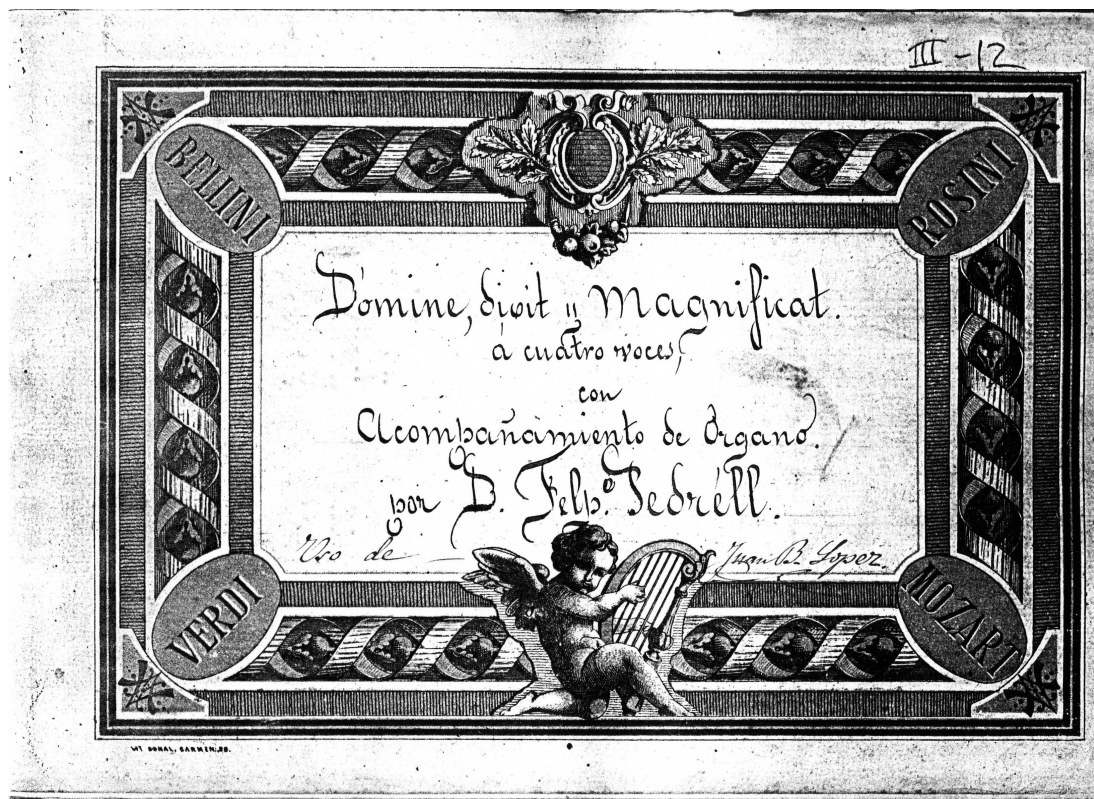 III-12
BELLINI
ROSINI
Dómine, dixit y Magnificat.
á cuatro voces,
con
Acompañamiento de Órgano.
por D. Felp.º Pedréll.
Uso de Juan B. Lopez.
VERDI
MOZART
LIT DONAL, CARMEN,